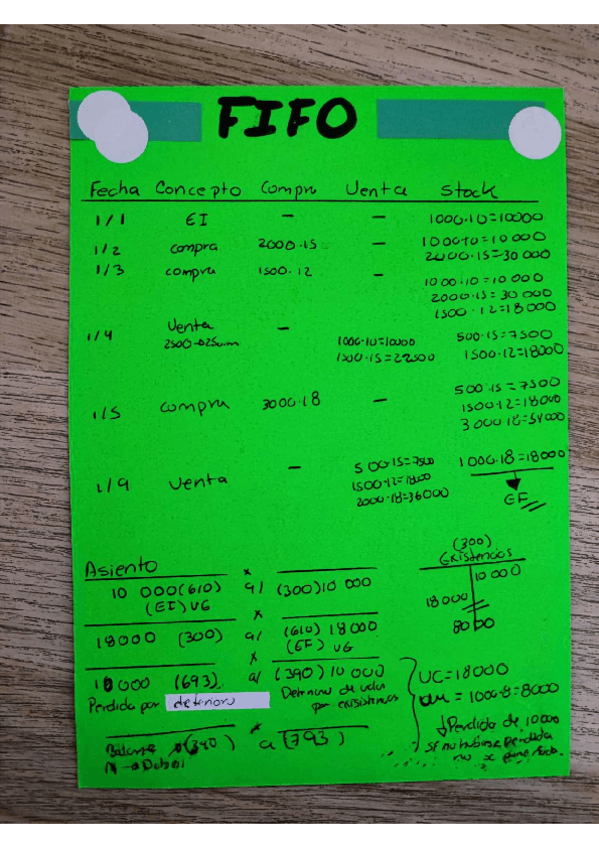 FIFO
Fecha Concepto Compra Venta Stock
1/1 EI - - 1000·10=10000
1/2 compra 2000·15 - 1000·10=10 000
2000·15=30 000
1/3 compra 1500·12 - 1000·10=10 000
2000·15=30 000
1500·12=18000
1/4 Venta - 1000·10=10000 500·15=7500
2500 1500·15=22500 1500·12=18000
1/5 compra 3000·18 - 500·15=7500
1500·12=18000
3000·18=54000
1/9 Venta - 500·15=7500 1000·18=18000
1500·12=18000
2000·18=36000
EF
Asiento
10 000(610) a/ (300)10 000
(EI)VG
x
18000 (300) a/ (610) 18000
(EF) VG
x
10000 (693) a/ (390)10 000
Perdida por deterioro Deterioro de valor
por existencias
x
Balance (390) a (793)
(300)
Existencias
10 000
18000
8000
UC=18000
= 1000·8=8000
↓Perdida de 10000
si no hubiese perdida
no se